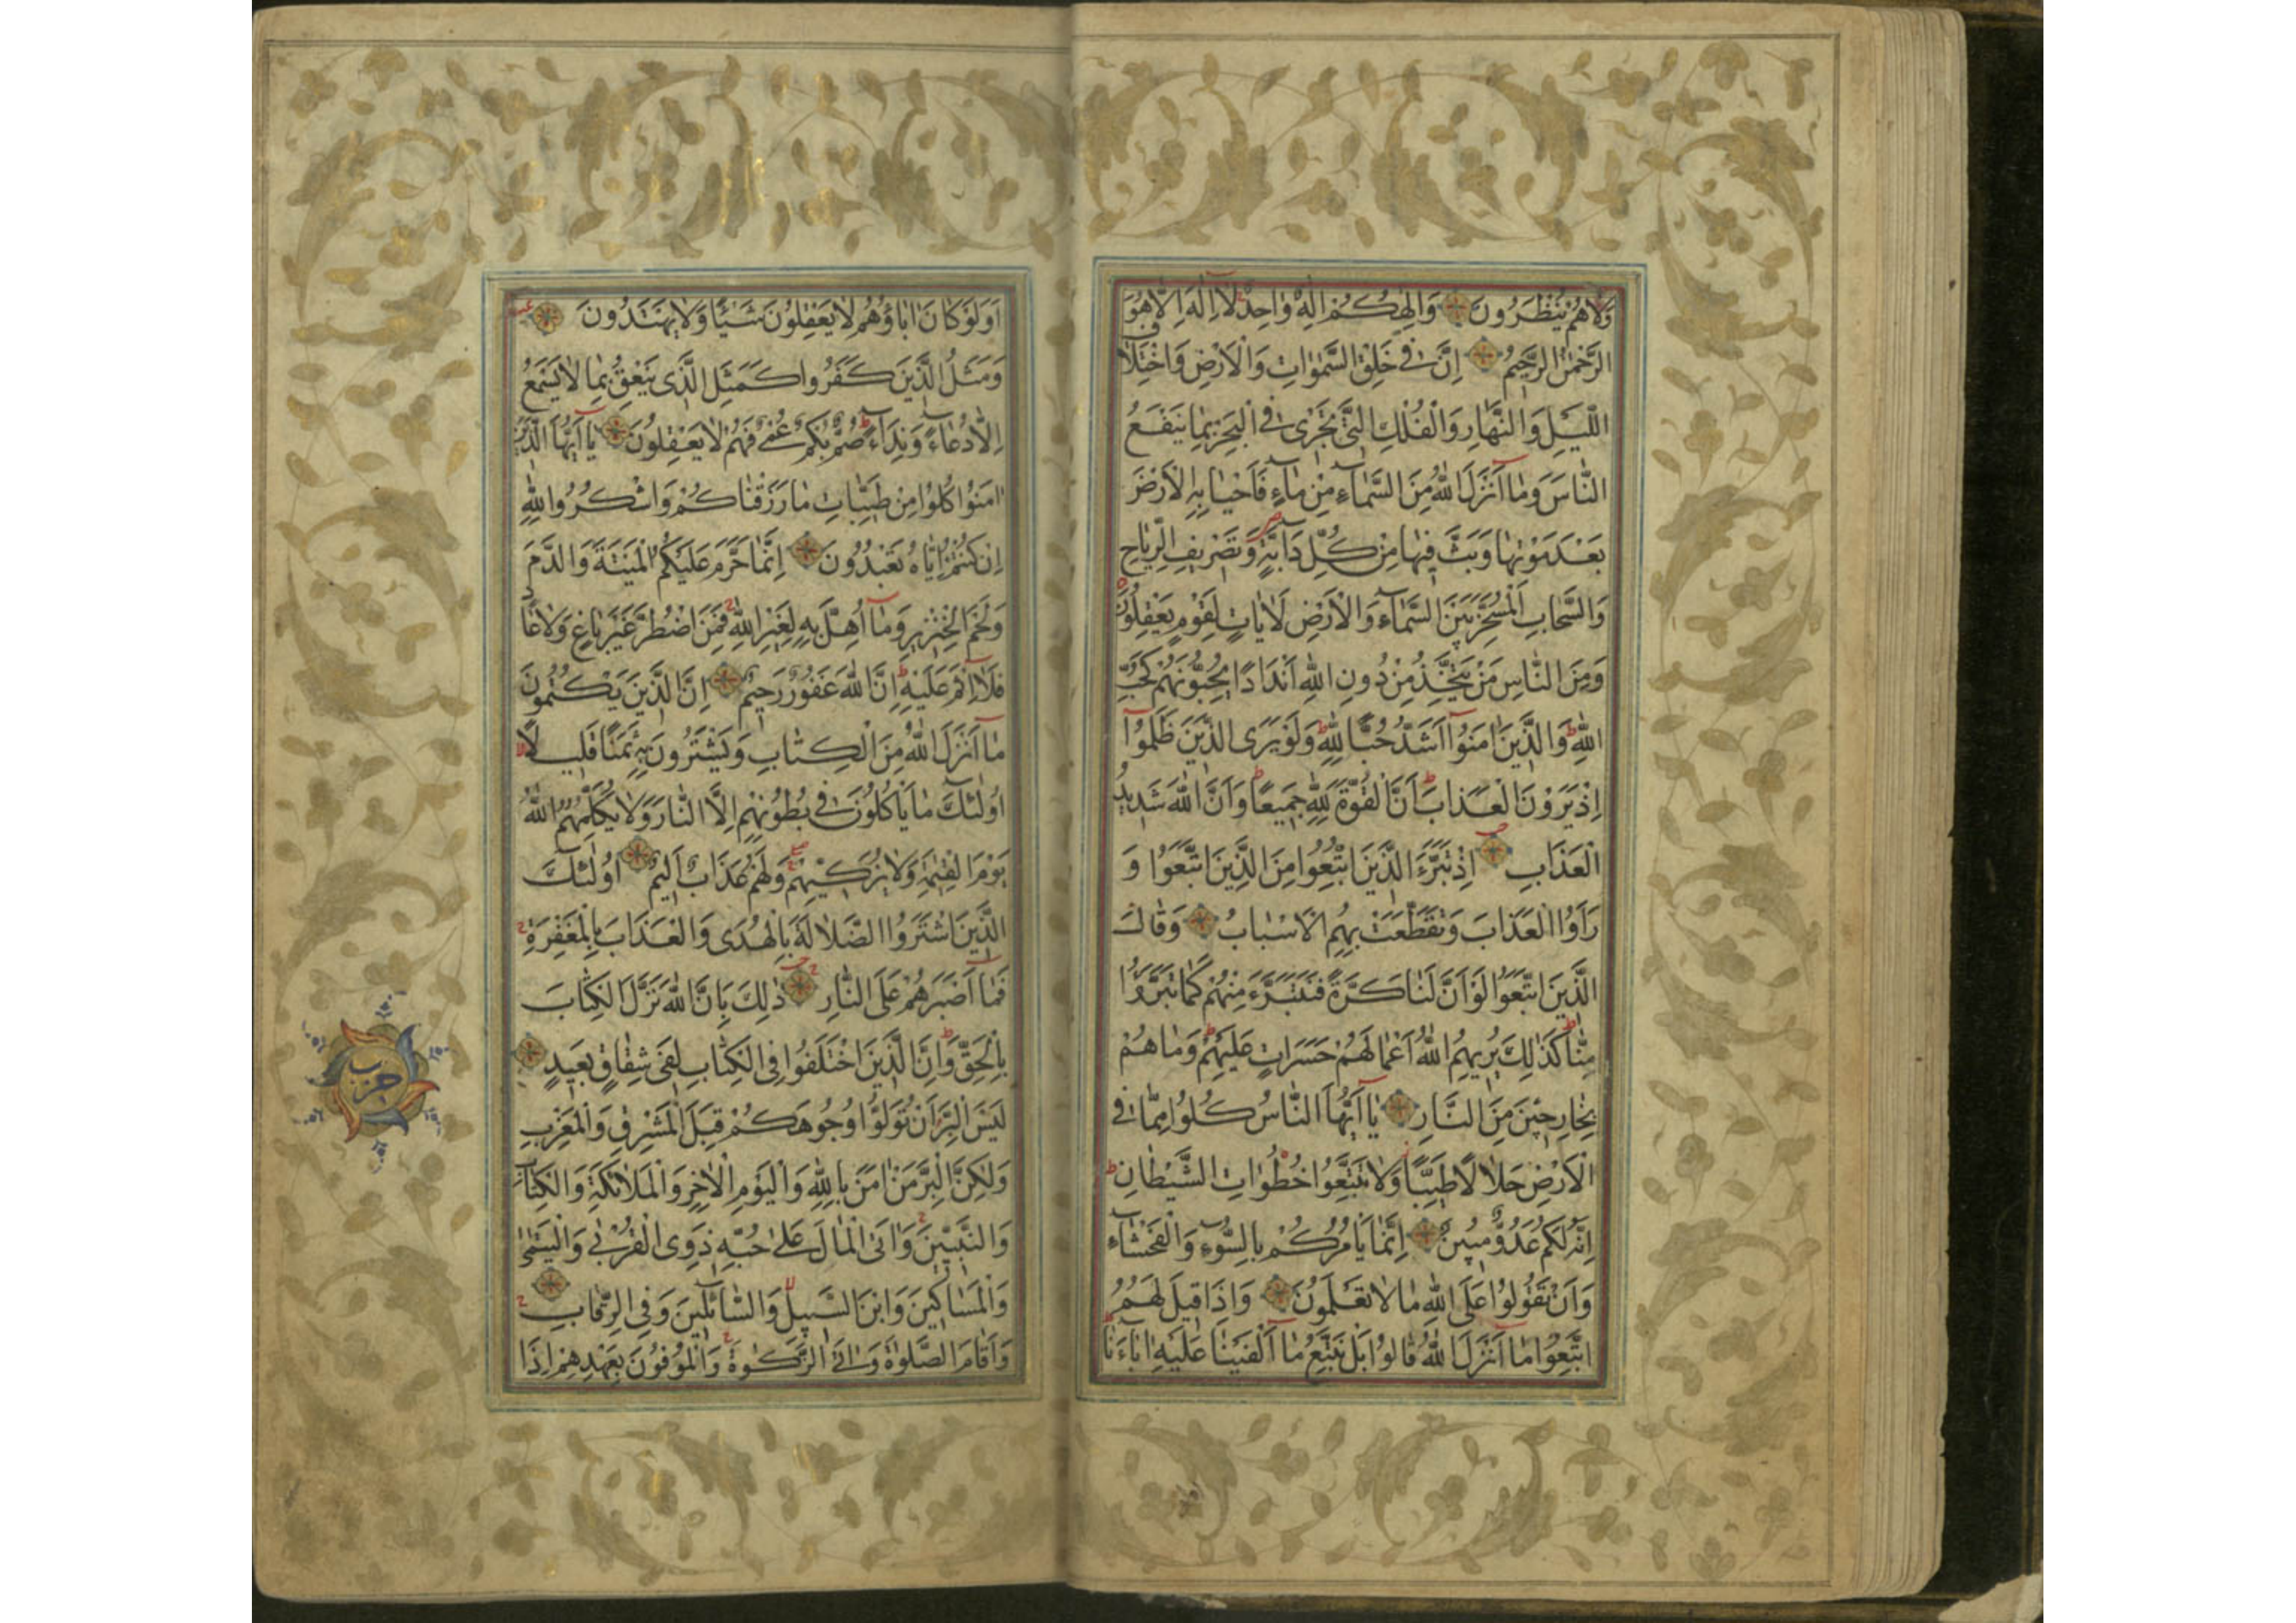 وَلَا هُمْ يُنْظَرُونَ وَاِلٰهُكُمْ اِلٰهٌ وَاحِدٌ لَا اِلٰهَ اِلَّا هُوَ
الرَّحْمٰنُ الرَّحِيمُ اِنَّ فِي خَلْقِ السَّمٰوَاتِ وَالْاَرْضِ وَاخْتِلَافِ
اللَّيْلِ وَالنَّهَارِ وَالْفُلْكِ الَّتِي تَجْرِي فِي الْبَحْرِ بِمَا يَنْفَعُ
النَّاسَ وَمَا اَنْزَلَ اللّٰهُ مِنَ السَّمَاءِ مِنْ مَاءٍ فَاَحْيَا بِهِ الْاَرْضَ
بَعْدَ مَوْتِهَا وَبَثَّ فِيهَا مِنْ كُلِّ دَابَّةٍ وَتَصْرِيفِ الرِّيَاحِ
وَالسَّحَابِ الْمُسَخَّرِ بَيْنَ السَّمَاءِ وَالْاَرْضِ لَاٰيَاتٍ لِقَوْمٍ يَعْقِلُونَ
وَمِنَ النَّاسِ مَنْ يَتَّخِذُ مِنْ دُونِ اللّٰهِ اَنْدَادًا يُحِبُّونَهُمْ كَحُبِّ
اللّٰهِ وَالَّذِينَ اٰمَنُوا اَشَدُّ حُبًّا لِلّٰهِ وَلَوْ يَرَى الَّذِينَ ظَلَمُوا
اِذْ يَرَوْنَ الْعَذَابَ اَنَّ الْقُوَّةَ لِلّٰهِ جَمِيعًا وَاَنَّ اللّٰهَ شَدِيدُ
الْعَذَابِ اِذْ تَبَرَّءَ الَّذِينَ اتُّبِعُوا مِنَ الَّذِينَ اتَّبَعُوا وَ
رَاَوُا الْعَذَابَ وَتَقَطَّعَتْ بِهِمُ الْاَسْبَابُ وَقَالَ
الَّذِينَ اتَّبَعُوا لَوْ اَنَّ لَنَا كَرَّةً فَنَتَبَرَّءَ مِنْهُمْ كَمَا تَبَرَّؤُا
مِنَّا كَذٰلِكَ يُرِيهِمُ اللّٰهُ اَعْمَالَهُمْ حَسَرَاتٍ عَلَيْهِمْ وَمَا هُمْ
بِخَارِجِينَ مِنَ النَّارِ يَا اَيُّهَا النَّاسُ كُلُوا مِمَّا فِي
الْاَرْضِ حَلَالًا طَيِّبًا وَلَا تَتَّبِعُوا خُطُوَاتِ الشَّيْطَانِ
اِنَّهُ لَكُمْ عَدُوٌّ مُبِينٌ اِنَّمَا يَاْمُرُكُمْ بِالسُّوءِ وَالْفَحْشَاءِ
وَاَنْ تَقُولُوا عَلَى اللّٰهِ مَا لَا تَعْلَمُونَ وَاِذَا قِيلَ لَهُمُ
اتَّبِعُوا مَا اَنْزَلَ اللّٰهُ قَالُوا بَلْ نَتَّبِعُ مَا اَلْفَيْنَا عَلَيْهِ اٰبَاءَنَا
اَوَلَوْ كَانَ اٰبَاؤُهُمْ لَا يَعْقِلُونَ شَيْئًا وَلَا يَهْتَدُونَ
وَمَثَلُ الَّذِينَ كَفَرُوا كَمَثَلِ الَّذِي يَنْعِقُ بِمَا لَا يَسْمَعُ
اِلَّا دُعَاءً وَنِدَاءً صُمٌّ بُكْمٌ عُمْيٌ فَهُمْ لَا يَعْقِلُونَ يَا اَيُّهَا الَّذِينَ
اٰمَنُوا كُلُوا مِنْ طَيِّبَاتِ مَا رَزَقْنَاكُمْ وَاشْكُرُوا لِلّٰهِ
اِنْ كُنْتُمْ اِيَّاهُ تَعْبُدُونَ اِنَّمَا حَرَّمَ عَلَيْكُمُ الْمَيْتَةَ وَالدَّمَ
وَلَحْمَ الْخِنْزِيرِ وَمَا اُهِلَّ بِهِ لِغَيْرِ اللّٰهِ فَمَنِ اضْطُرَّ غَيْرَ بَاغٍ وَلَا عَادٍ
فَلَا اِثْمَ عَلَيْهِ اِنَّ اللّٰهَ غَفُورٌ رَحِيمٌ اِنَّ الَّذِينَ يَكْتُمُونَ
مَا اَنْزَلَ اللّٰهُ مِنَ الْكِتَابِ وَيَشْتَرُونَ بِهِ ثَمَنًا قَلِيلًا
اُولٰئِكَ مَا يَاْكُلُونَ فِي بُطُونِهِمْ اِلَّا النَّارَ وَلَا يُكَلِّمُهُمُ اللّٰهُ
يَوْمَ الْقِيٰمَةِ وَلَا يُزَكِّيهِمْ وَلَهُمْ عَذَابٌ اَلِيمٌ اُولٰئِكَ
الَّذِينَ اشْتَرَوُا الضَّلَالَةَ بِالْهُدَى وَالْعَذَابَ بِالْمَغْفِرَةِ
فَمَا اَصْبَرَهُمْ عَلَى النَّارِ ذٰلِكَ بِاَنَّ اللّٰهَ نَزَّلَ الْكِتَابَ
بِالْحَقِّ وَاِنَّ الَّذِينَ اخْتَلَفُوا فِي الْكِتَابِ لَفِي شِقَاقٍ بَعِيدٍ
لَيْسَ الْبِرَّ اَنْ تُوَلُّوا وُجُوهَكُمْ قِبَلَ الْمَشْرِقِ وَالْمَغْرِبِ
وَلٰكِنَّ الْبِرَّ مَنْ اٰمَنَ بِاللّٰهِ وَالْيَوْمِ الْاٰخِرِ وَالْمَلَائِكَةِ وَالْكِتَابِ
وَالنَّبِيِّينَ وَاٰتَى الْمَالَ عَلَى حُبِّهِ ذَوِي الْقُرْبَى وَالْيَتَامَى
وَالْمَسَاكِينَ وَابْنَ السَّبِيلِ وَالسَّائِلِينَ وَفِي الرِّقَابِ
وَاَقَامَ الصَّلٰوةَ وَاٰتَى الزَّكٰوةَ وَالْمُوفُونَ بِعَهْدِهِمْ اِذَا
حزب